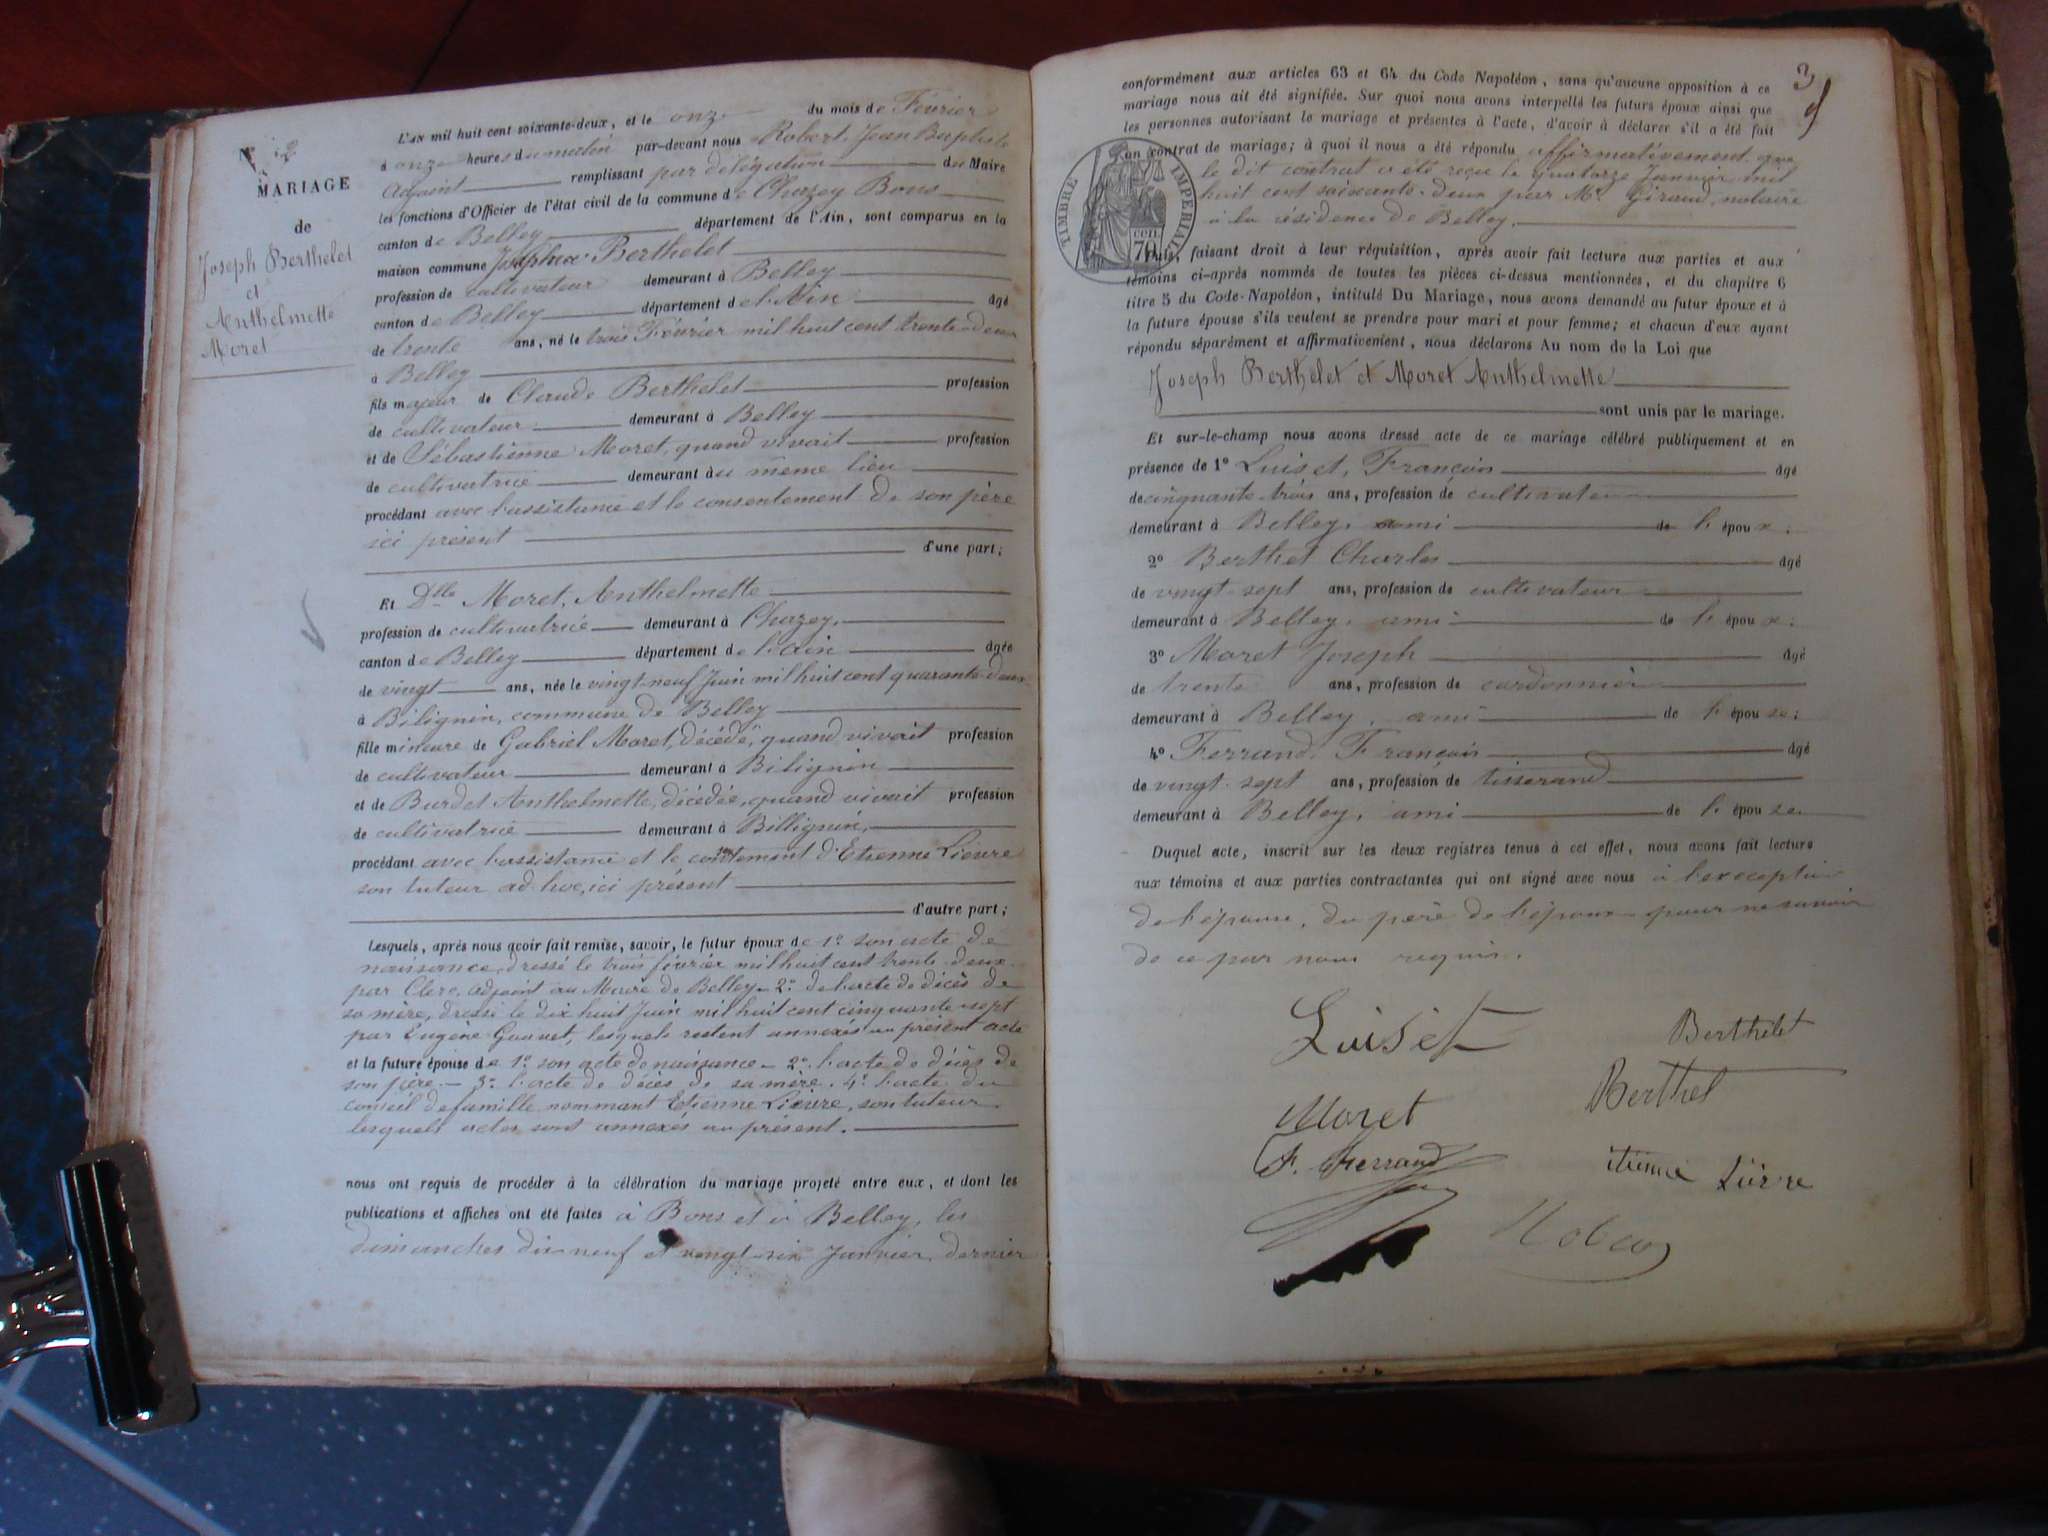 N° 2
MARIAGE
de
Joseph Berthelet
et
Anthelmette
Moret
L'AN mil huit cent soixante-deux, et le onze du mois de Février
à onze heures du matin par-devant nous Robert, Jean Baptiste
adjoint remplissant par délégation du Maire
les fonctions d'Officier de l'état civil de la commune de Chazey Bons
canton de Belley département de l'Ain, sont comparus en la
maison commune Berthelet
profession de cultivateur demeurant à Belley
canton de Belley département de l'Ain âgé
de trente ans, né le trois Février mil huit cent trente-deux
à Belley
fils majeur de Claude Berthelet profession
de cultivateur demeurant à Belley
et de Sébastienne Moret, quand vivait profession
de cultivatrice demeurant au même lieu
procédant avec l'assistance et le consentement de son père
ici présent
d'une part;
Et Dlle Moret, Anthelmette
profession de cultivatrice demeurant à Chazey,
canton de Belley département de l'Ain âgée
de vingt ans, née le vingt-neuf Juin mil huit cent quarante-deux
à Bilignin, commune de Belley
fille mineure de Gabriel Moret, décédé, quand vivait profession
de cultivateur demeurant à Bilignin
et de Burdet Anthelmette, décédée, quand vivait profession
de cultivatrice demeurant à Billignin,
procédant avec l'assistance et le consentement d'Etienne Lièvre
son tuteur ad hoc, ici présent
d'autre part;
Lesquels, après nous avoir fait remise, savoir, le futur époux de 1° son acte de
naissance, dressé le trois février mil huit cent trente-deux
par Clerc, adjoint au Maire de Belley - 2° de l'acte de décès de
sa mère, dressé le dix huit Juin mil huit cent cinquante-sept
par Eugène lesquels restent annexés au présent acte
et la future épouse de 1° son acte de naissance - 2° l'acte de décès de
son père. - 3° l'acte de décès de sa mère. 4° l'acte du
conseil de famille nommant Etienne Lièvre, son tuteur
lesquels actes sont annexés au présent.
nous ont requis de procéder à la célébration du mariage projeté entre eux, et dont les
publications et affiches ont été faites à Bons et à Belley, les
dimanches dix neuf et vingt-six Janvier dernier
3
conformément aux articles 63 et 64 du Code Napoléon, sans qu'aucune opposition à ce
mariage nous ait été signifiée. Sur quoi nous avons interpellé les futurs époux ainsi que
les personnes autorisant le mariage et présentes à l'acte, d'avoir à déclarer s'il a été fait
un contrat de mariage; à quoi il nous a été répondu affirmativement que
le dit contrat a été reçu le quatorze Janvier mil
huit cent soixante-deux par Me Giraud, notaire
à la résidence de Belley.
TIMBRE IMPERIAL
cen. 70
Puis, faisant droit à leur réquisition, après avoir fait lecture aux parties et aux
témoins ci-après nommés de toutes les pièces ci-dessus mentionnées, et du chapitre 6
titre 5 du Code-Napoléon, intitulé Du Mariage, nous avons demandé au futur époux et à
la future épouse s'ils veulent se prendre pour mari et pour femme; et chacun d'eux ayant
répondu séparément et affirmativement, nous déclarons Au nom de la Loi que
Joseph Berthelet et Moret Anthelmette
sont unis par le mariage.
Et sur-le-champ nous avons dressé acte de ce mariage célébré publiquement et en
présence de 1° Luiset, François âgé
de cinquante-trois ans, profession de cultivateur
demeurant à Belley, ami de l'époux;
2° Berthet Charles âgé
de vingt-sept ans, profession de cultivateur
demeurant à Belley, ami de l'époux;
3° Moret Joseph âgé
de trente ans, profession de cordonnier
demeurant à Belley, ami de l'épouse;
4° Ferrand, François âgé
de vingt-sept ans, profession de tisserand
demeurant à Belley, ami de l'épouse
Duquel acte, inscrit sur les deux registres tenus à cet effet, nous avons fait lecture
aux témoins et aux parties contractantes qui ont signé avec nous à l'exception
de l'épouse, du père de l'époux pour ne savoir
de ce par nous requis.
Luiset
Berthelet
Moret
Berthet
F. Ferrand
Lièvre